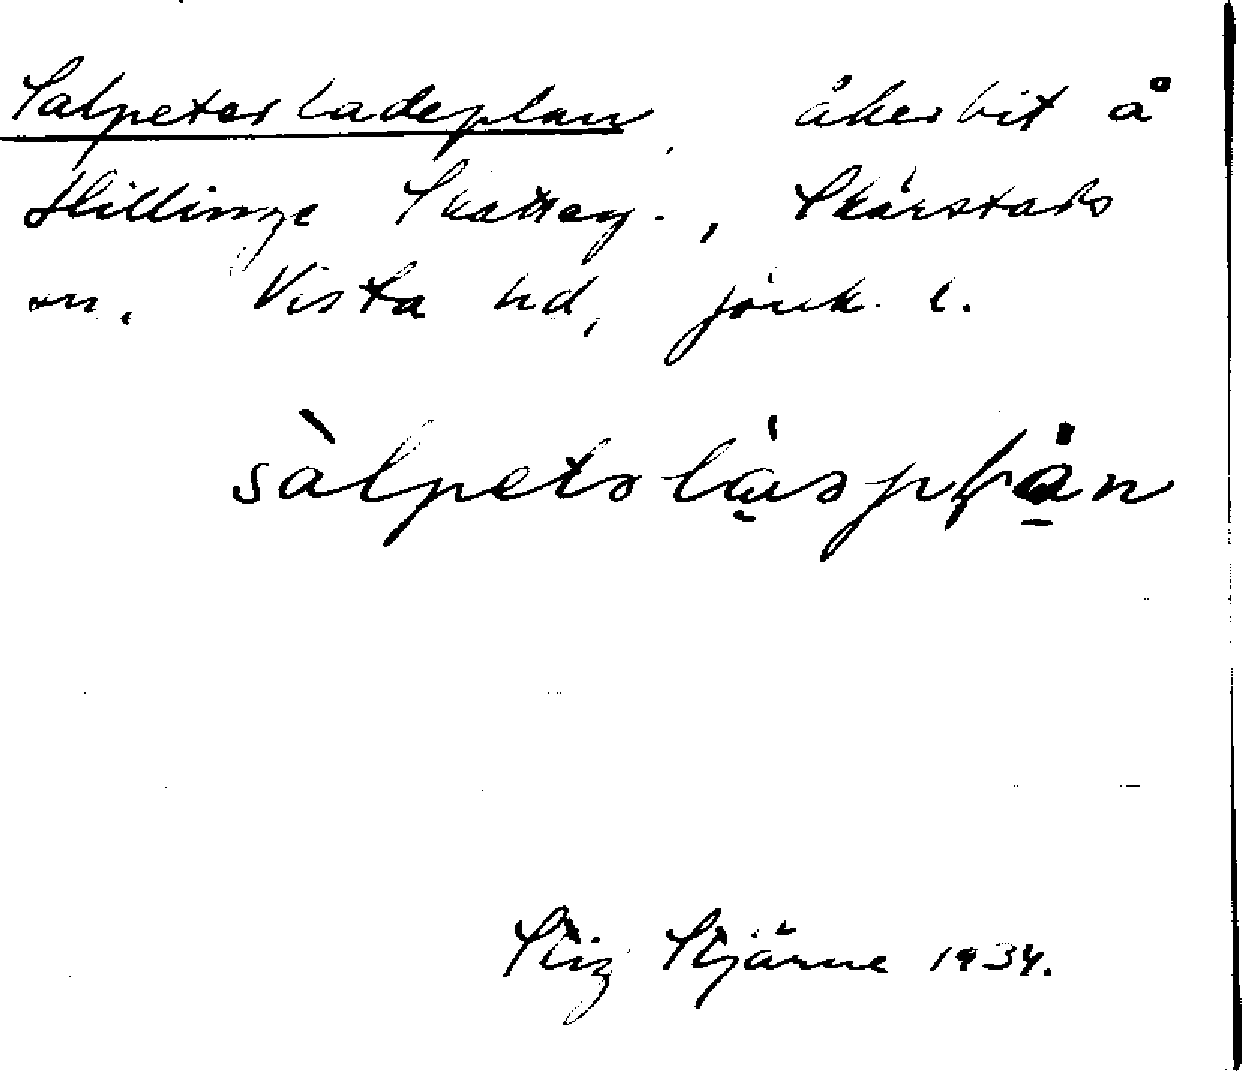 Salpeterladeplan, åkerbit å
Hillinge Skatteg., Skärstads
sn. Vista hd, Jönk. l.
sàlpetslásplån
Stig Stjärne 1934.